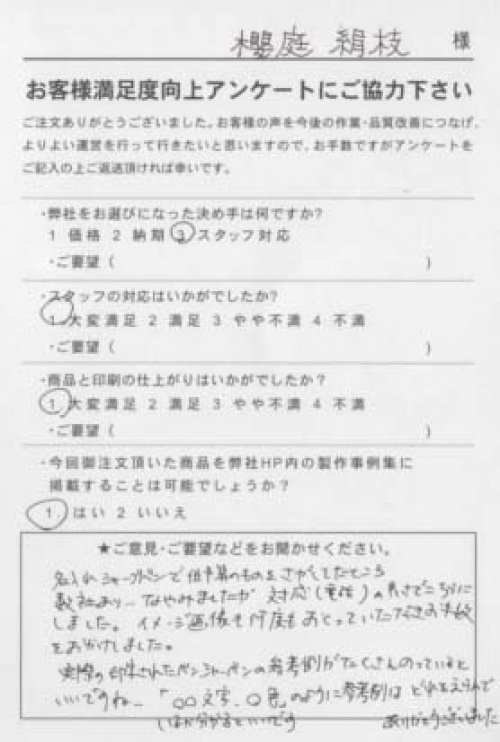 櫻庭 絹枝 様
お客様満足度向上アンケートにご協力下さい
ご注文ありがとうございました。お客様の声を今後の作業・品質改善につなげ、
よりよい運営を行って行きたいと思いますので、お手数ですがアンケートを
ご記入の上ご返送頂ければ幸いです。
・弊社をお選びになった決め手は何ですか?
1 価格 2 納期 3 スタッフ対応
・ご要望 ( )
・スタッフの対応はいかがでしたか?
1 大変満足 2 満足 3 やや不満 4 不満
・ご要望 ( )
・商品と印刷の仕上がりはいかがでしたか?
1 大変満足 2 満足 3 やや不満 4 不満
・ご要望 ( )
・今回御注文頂いた商品を弊社HP内の製作事例集に
掲載することは可能でしょうか?
1 はい 2 いいえ
★ご意見・ご要望などをお聞かせください。
名入れシャープペンで低予算のものをさがしてたところ
数社あり… なやみましたが 対応(電話)の良さでこちらに
しました。イメージ画像も何度もおとっていただきお手数
をおかけしました。
実際の印字されたペンシャーペンの参考例がたくさんのっていると
いいですね…「○○文字、○色」のように参考例は どれをえらんで
いるか分かるといいです
ありがとうございました